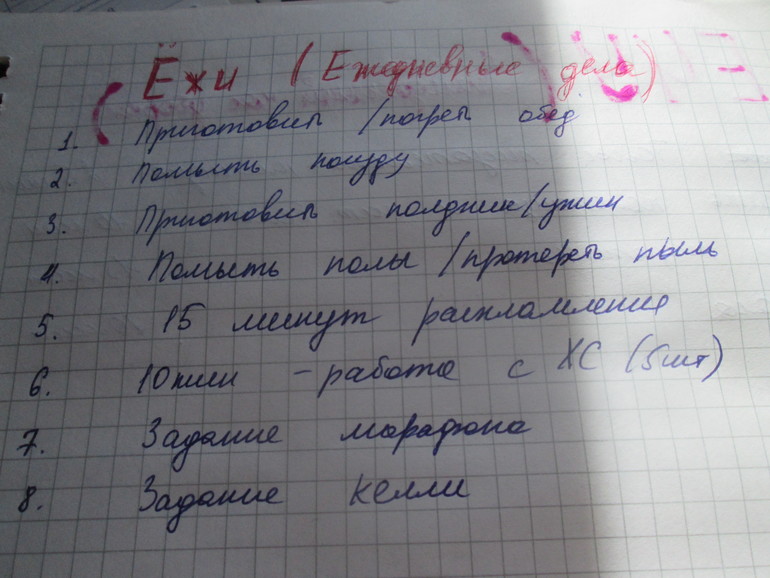 Ёжи (Ежедневные дела)
1. Приготовить/погреть обед
2. Помыть посуду
3. Приготовить полдник/ужин
4. Помыть полы/протереть пыль
5. 15 минут расхламления
6. 10 мин - работа с ХС (5 шт)
7. Задание марафона
8. Задание Келли